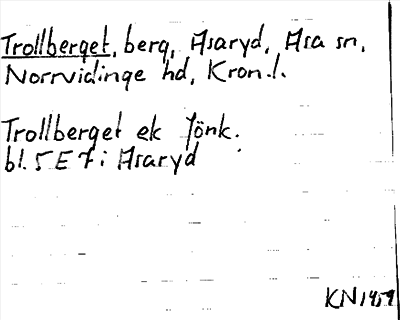 Trollberget, berg, Asaryd, Asa sn,
Norrvidinge hd, Kron.l.
Trollberget ek Jönk.
bl. 5 E 7 i Asaryd
KN